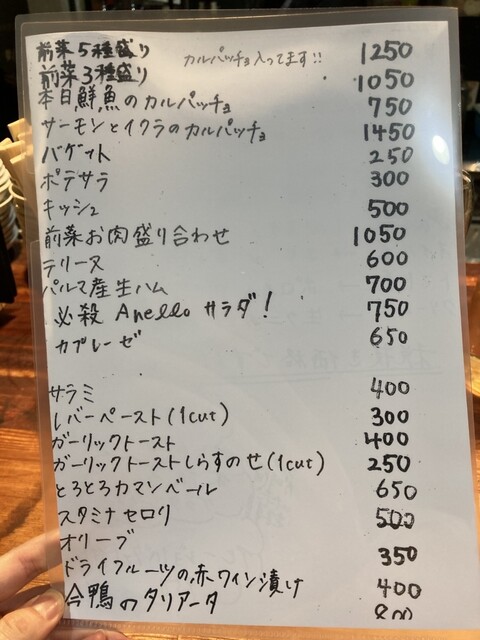 前菜5種盛り カルパッチョ入ってます!! 1250
前菜3種盛り 1050
本日鮮魚のカルパッチョ 750
サーモンとイクラのカルパッチョ 1450
バゲット 250
ポテサラ 300
キッシュ 500
前菜お肉盛り合わせ 1050
テリーヌ 600
パルマ産生ハム 700
必殺 Anello サラダ! 750
カプレーゼ 650
サラミ 400
レバーペースト(1cut) 300
ガーリックトースト 400
ガーリックトーストしらすのせ(1cut) 250
とろとろカマンベール 650
スタミナセロリ 500
オリーブ 350
ドライフルーツの赤ワイン漬け 400
合鴨のタリアータ 800